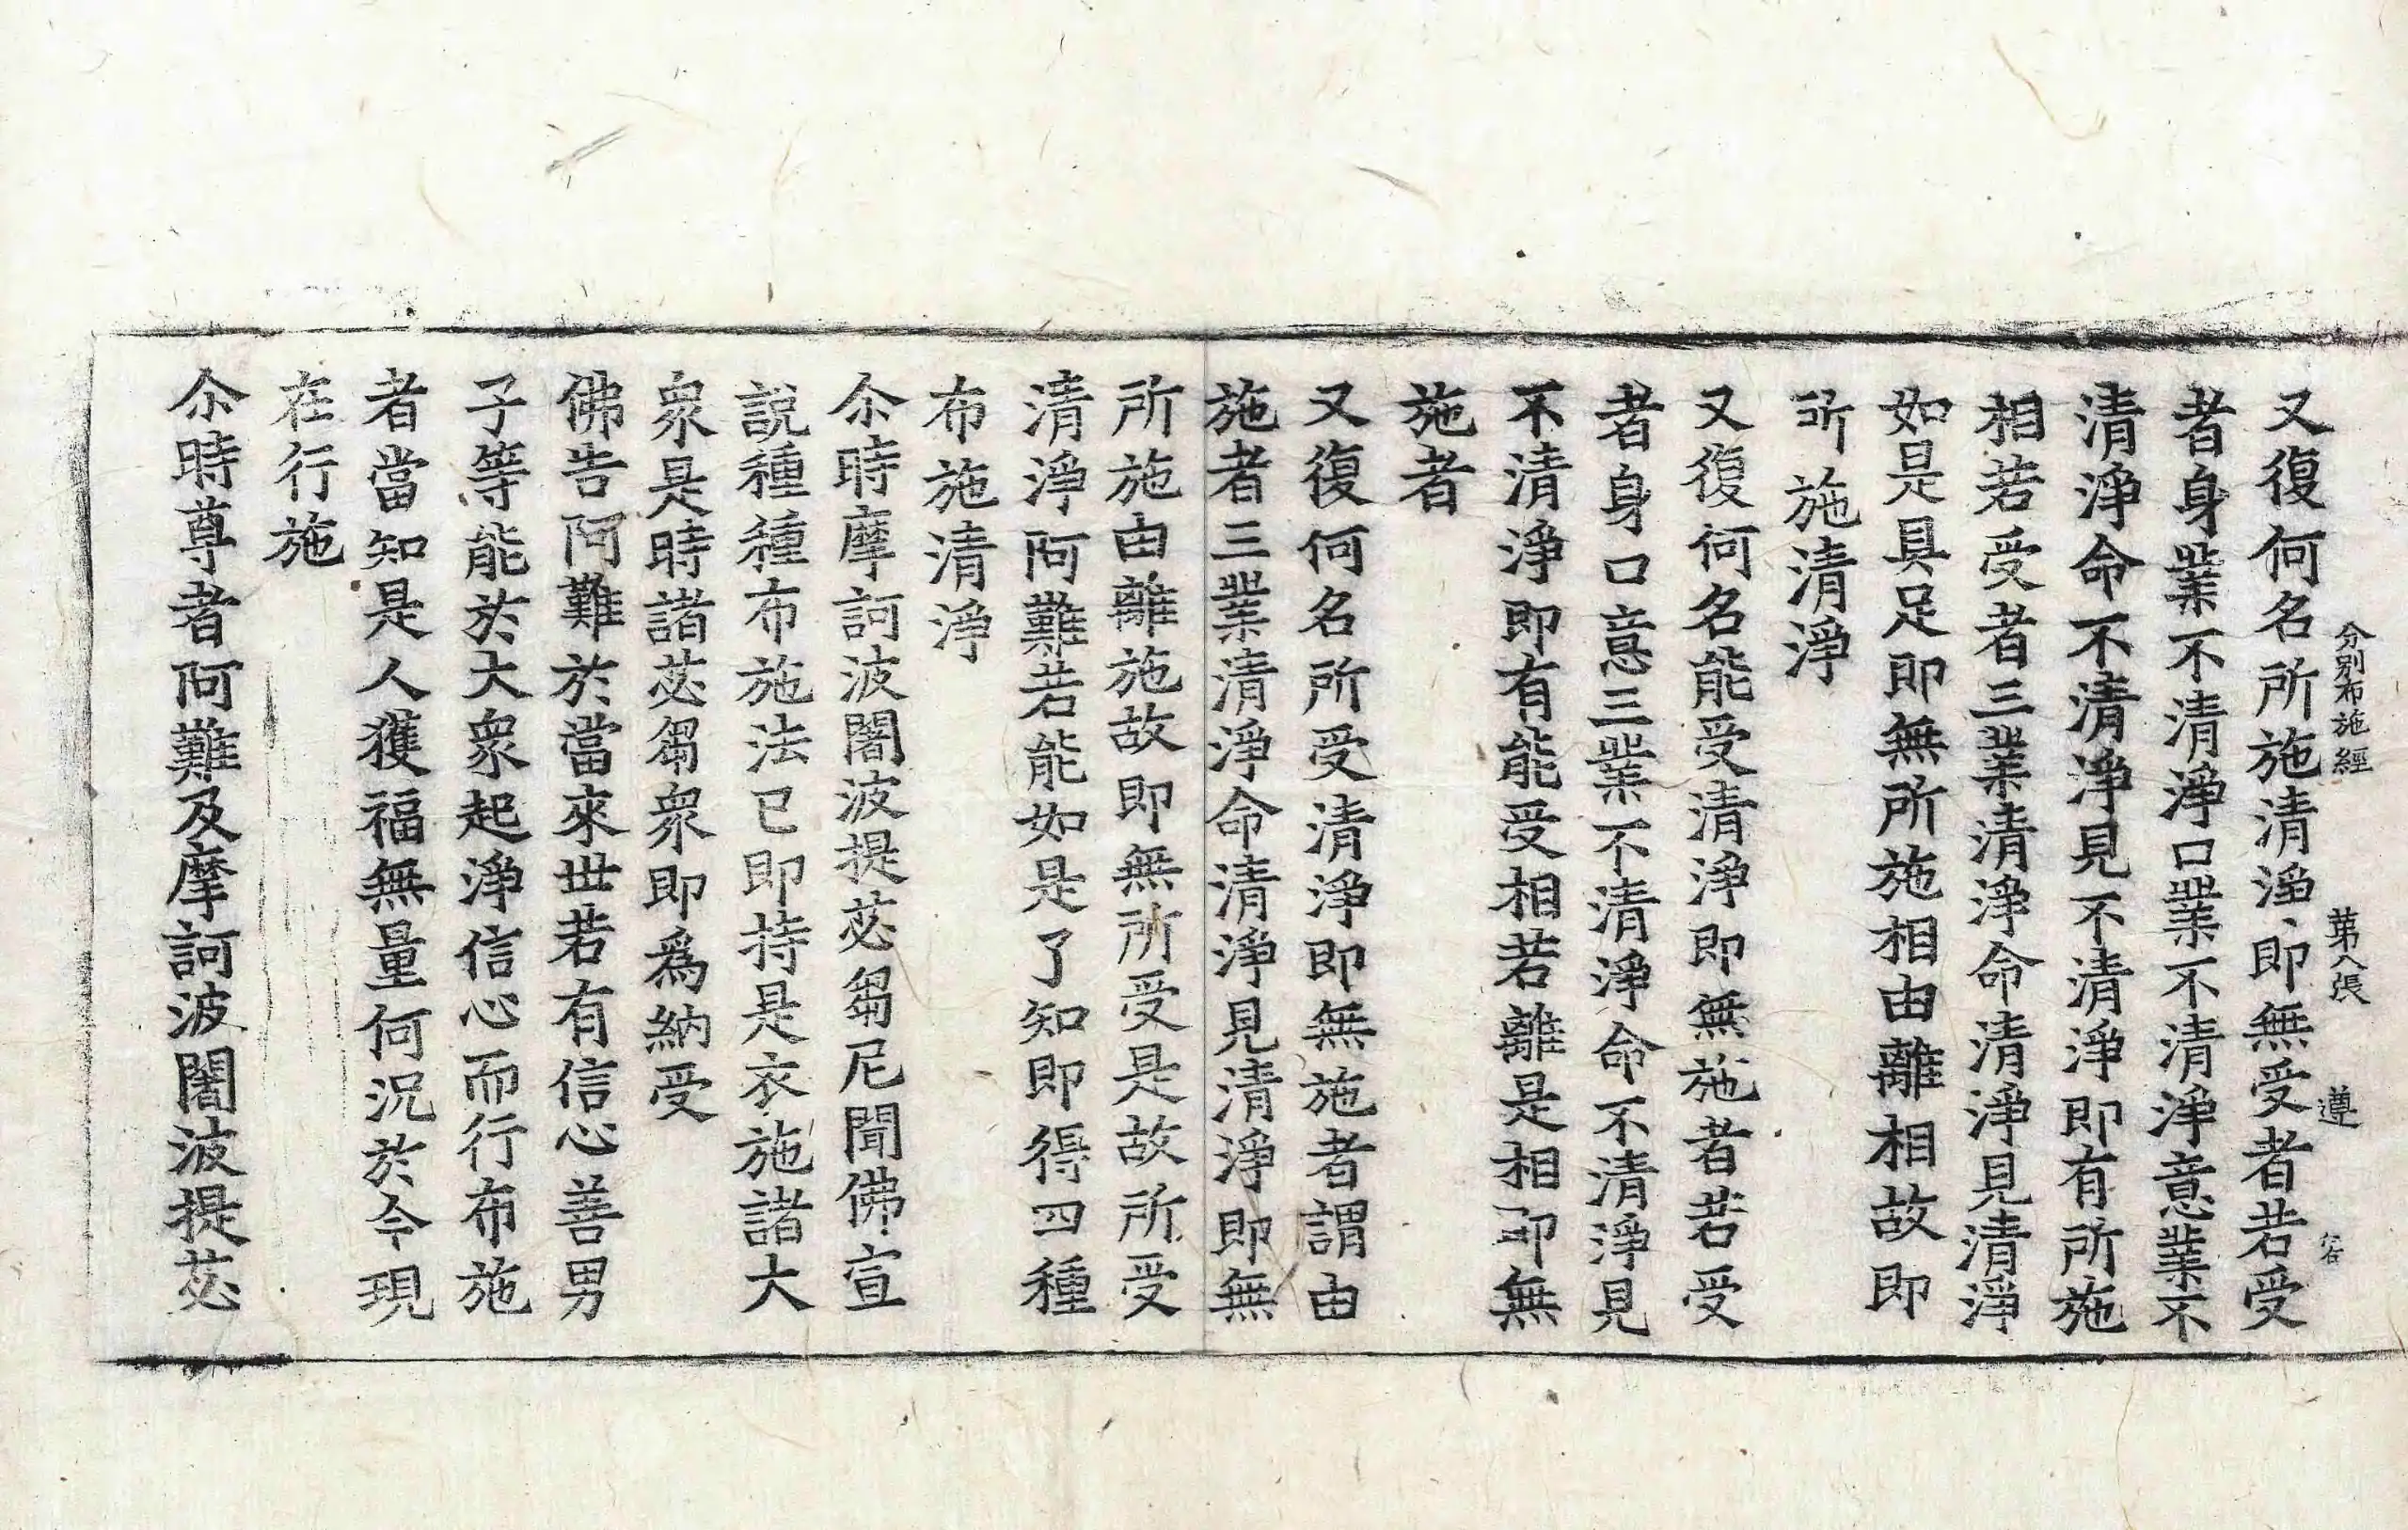 分別布施經 第八張 遵
又復何名所施清淨即無受者若受
者身業不清淨口業不清淨意業不
清淨命不清淨見不清淨即有所施
相若受者三業清淨命清淨見清淨
如是具足即無所施相由離相故即
所施清淨
又復何名能受清淨即無施者若受
者身口意三業不清淨命不清淨見
不清淨即有能受相若離是相即無
施者
又復何名所受清淨即無施者謂由
施者三業清淨命清淨見清淨即無
所施由離施故即無所受是故所受
清淨阿難若能如是了知即得四種
布施清淨
尒時摩訶波闍波提苾芻尼聞佛宣
說種種布施法已即持是衣施諸大
衆是時諸苾芻衆即爲納受
佛告阿難於當來世若有信心善男
子等能於大衆起淨信心而行布施
者當知是人獲福無量何況於今現
在行施
尒時尊者阿難及摩訶波闍波提苾